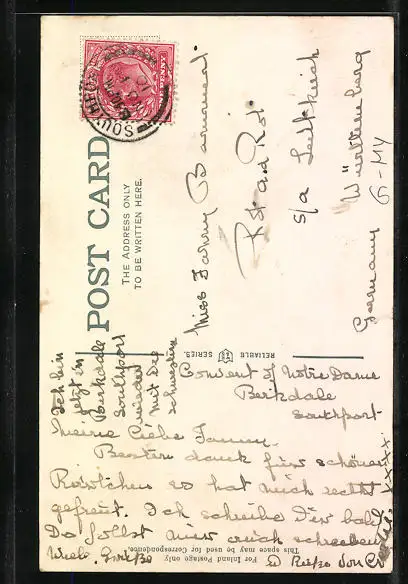 POST CARD
THE ADDRESS ONLY
TO BE WRITTEN HERE.
RELIABLE SERIES.
Miss Fanny
s/a Leutkirch
Württemberg
Germany
Ich bin
jetzt in
Birkdale
Southport
wieder
mit den
Schwestern
Convent of Notre Dame
Birkdale
Southport
Meine liebe Fanny.
Besten dank für schönes
Kärtchen es hat mich recht
gefreut. Ich schreibe Dir bald
Du sollst mir auch schreiben
Viele Grüße von
For Inland Postage only
This space may be used for Correspondence.
SOUTHPORT